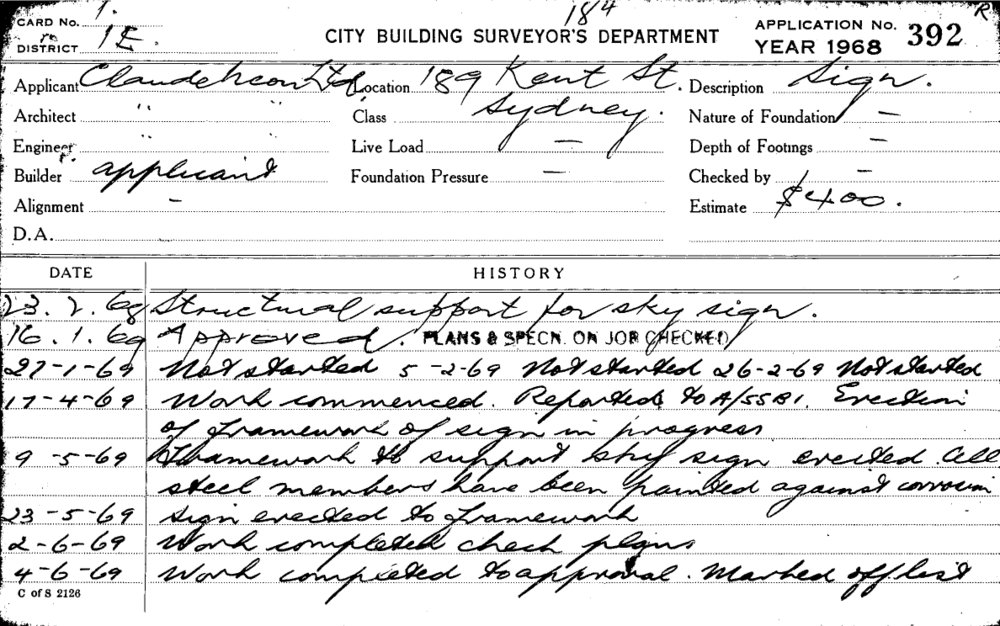 CARD No. 1. 184 R
DISTRICT 1E. CITY BUILDING SURVEYOR'S DEPARTMENT APPLICATION No. 392
YEAR 1968
Applicant Claude Neon Ltd Location 189 Kent St. Description Sign.
Architect " " Class Sydney. Nature of Foundation —
Engineer " " Live Load — Depth of Footings —
Builder applicant Foundation Pressure — Checked by —
Alignment — Estimate $400.
D.A.
DATE HISTORY
23. 2. 68 Structural support for sky sign.
16. 1. 69 Approved. PLANS & SPECN. ON JOB CHECKED
27-1-69 Not started 5-2-69 Not started 26-2-69 Not started
17-4-69 Work commenced. Reported to A/SSB1. Erection
of framework of sign in progress
9-5-69 Framework to support sky sign erected. All
steel members have been painted against corrosion
23-5-69 Sign erected to framework
2-6-69 Work completed check plans
4-6-69 Work completed to approval. Marked off list
C of S 2126